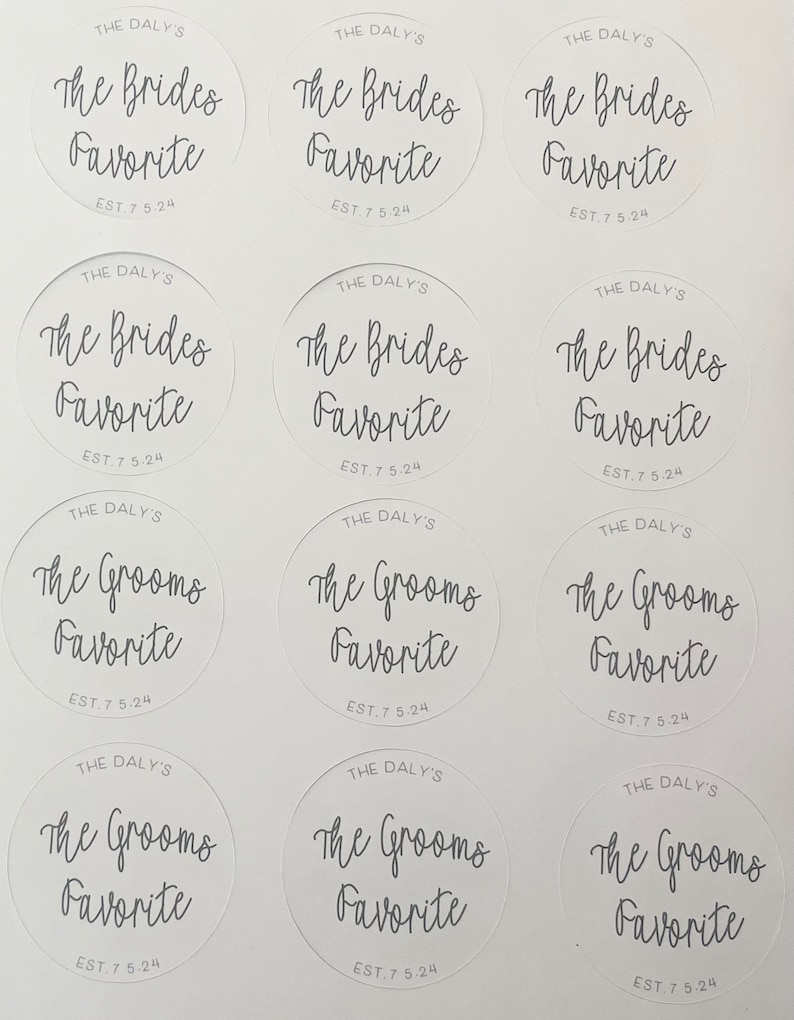 THE DALY'S
The Brides
Favorite
EST. 7 5.24
THE DALY'S
The Brides
Favorite
EST. 7 5.24
THE DALY'S
The Brides
Favorite
EST. 7 5.24
THE DALY'S
The Brides
Favorite
EST. 7 5.24
THE DALY'S
The Brides
Favorite
EST. 7 5.24
THE DALY'S
The Brides
Favorite
EST. 7 5.24
THE DALY'S
The Grooms
Favorite
EST. 7 5.24
THE DALY'S
The Grooms
Favorite
EST. 7 5.24
THE DALY'S
The Grooms
Favorite
EST. 7 5.24
THE DALY'S
The Grooms
Favorite
EST. 7 5.24
THE DALY'S
The Grooms
Favorite
EST. 7 5.24
THE DALY'S
The Grooms
Favorite
EST. 7 5.24